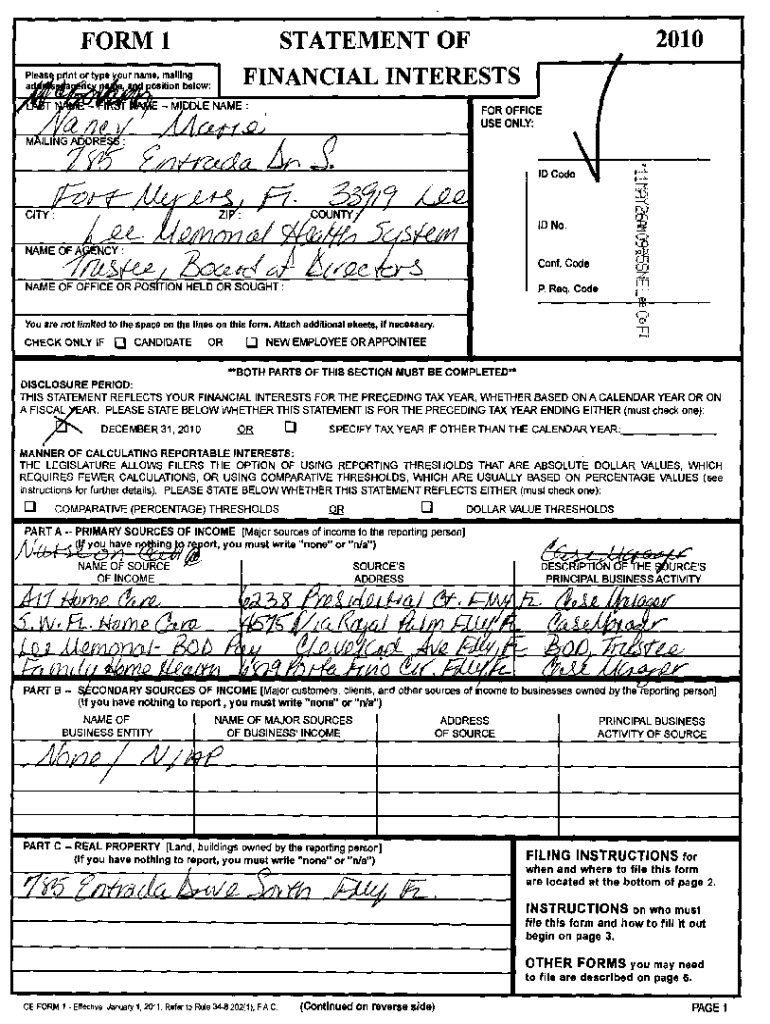 FORM 1 STATEMENT OF 2010
FINANCIAL INTERESTS
Please print or type your name, mailing
address, agency name, and position below:
LAST NAME -- FIRST NAME -- MIDDLE NAME :
Nancy Marie
MAILING ADDRESS :
785 Entrada Dr S.
Fort Myers, Fl. 33919 Lee
CITY : ZIP : COUNTY :
Lee Memorial Health System
NAME OF AGENCY :
Trustee, Board of Directors
NAME OF OFFICE OR POSITION HELD OR SOUGHT :
You are not limited to the space on the lines on this form. Attach additional sheets, if necessary.
CHECK ONLY IF ☐ CANDIDATE OR ☐ NEW EMPLOYEE OR APPOINTEE
FOR OFFICE
USE ONLY:
ID Code
ID No.
Conf. Code
P. Req. Code
**BOTH PARTS OF THIS SECTION MUST BE COMPLETED**
DISCLOSURE PERIOD:
THIS STATEMENT REFLECTS YOUR FINANCIAL INTERESTS FOR THE PRECEDING TAX YEAR, WHETHER BASED ON A CALENDAR YEAR OR ON
A FISCAL YEAR. PLEASE STATE BELOW WHETHER THIS STATEMENT IS FOR THE PRECEDING TAX YEAR ENDING EITHER (must check one):
☒ DECEMBER 31, 2010 OR ☐ SPECIFY TAX YEAR IF OTHER THAN THE CALENDAR YEAR:
MANNER OF CALCULATING REPORTABLE INTERESTS:
THE LEGISLATURE ALLOWS FILERS THE OPTION OF USING REPORTING THRESHOLDS THAT ARE ABSOLUTE DOLLAR VALUES, WHICH
REQUIRES FEWER CALCULATIONS, OR USING COMPARATIVE THRESHOLDS, WHICH ARE USUALLY BASED ON PERCENTAGE VALUES (see
instructions for further details). PLEASE STATE BELOW WHETHER THIS STATEMENT REFLECTS EITHER (must check one):
☐ COMPARATIVE (PERCENTAGE) THRESHOLDS OR ☐ DOLLAR VALUE THRESHOLDS
PART A -- PRIMARY SOURCES OF INCOME [Major sources of income to the reporting person]
(If you have nothing to report, you must write "none" or "n/a")
Nurse on Call Case Manager
NAME OF SOURCE SOURCE'S DESCRIPTION OF THE SOURCE'S
OF INCOME ADDRESS PRINCIPAL BUSINESS ACTIVITY
Home Care 6238 Presidential Ct. Case Manager
S.W. FL. Home Care 4575 Via Royal Palm Case Manager
Lee Memorial - BOD Pay Cleveland Ave BOD, Trustee
Family Home Health Porta Fino Cir. Case Manager
PART B -- SECONDARY SOURCES OF INCOME [Major customers, clients, and other sources of income to businesses owned by the reporting person]
(If you have nothing to report , you must write "none" or "n/a")
NAME OF NAME OF MAJOR SOURCES ADDRESS PRINCIPAL BUSINESS
BUSINESS ENTITY OF BUSINESS' INCOME OF SOURCE ACTIVITY OF SOURCE
None /
PART C -- REAL PROPERTY [Land, buildings owned by the reporting person]
(If you have nothing to report, you must write "none" or "n/a")
785 Entrada Drive South
FILING INSTRUCTIONS for
when and where to file this form
are located at the bottom of page 2.
INSTRUCTIONS on who must
file this form and how to fill it out
begin on page 3.
OTHER FORMS you may need
to file are described on page 6.
CE FORM 1 - Effective January 1, 2011. Refer to Rule 34-8.202(1), F.A.C. (Continued on reverse side) PAGE 1